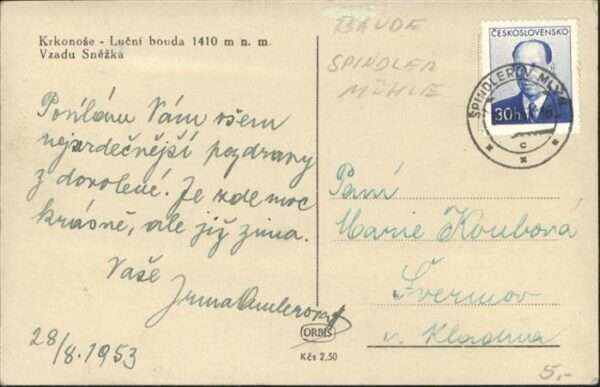 Krkonoše - Luční bouda 1410 m n. m.
Vzadu Sněžka
BAUDE
SPINDLER
MÜHLE
ČESKOSLOVENSKO
30h
ŠPINDLERŮV MLÝN
c
Posílám Vám všem
nejsrdečnější pozdravy
z dovolené. Je zde moc
krásně, ale již zima.
Vaše
Irma
28/8. 1953
Paní
Marie Koubová
Švermov
u Kladna
ORBIS
Kčs 2,50
5,-